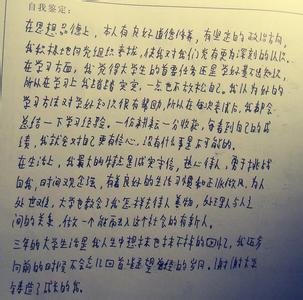 自我鉴定:
在思想品德上,本人有良好道德修养,有坚定的政治方向,
我积极地向党组织靠拢,使我对我们党有更为深刻的认识。
在学习方面,我觉得大学生的首要任务还是学好专业知识,
所以在学习上我踏踏实实,一点也不放松自己。我认为好的
学习方法对学好知识很有帮助,所以在每次考试后,我都会
总结一下学习经验。一份耕耘一分收获,每看到自己的成
绩,我就会对自己更有信心,没有什么事是不可能的。
在生活上,我最大的特点是诚实守信,热心待人,勇于挑战
自我,时间观念强,有着良好的生活习惯和正派作风。为人
处世
间的关系,做一个能融入这个社会的有新人。
三年的大学生活是我人生中想抹也抹不掉的回忆,我迈步
向前的时候不会忘记回首凝望曾经的岁月。谢谢大学
与铸造了成长的我。